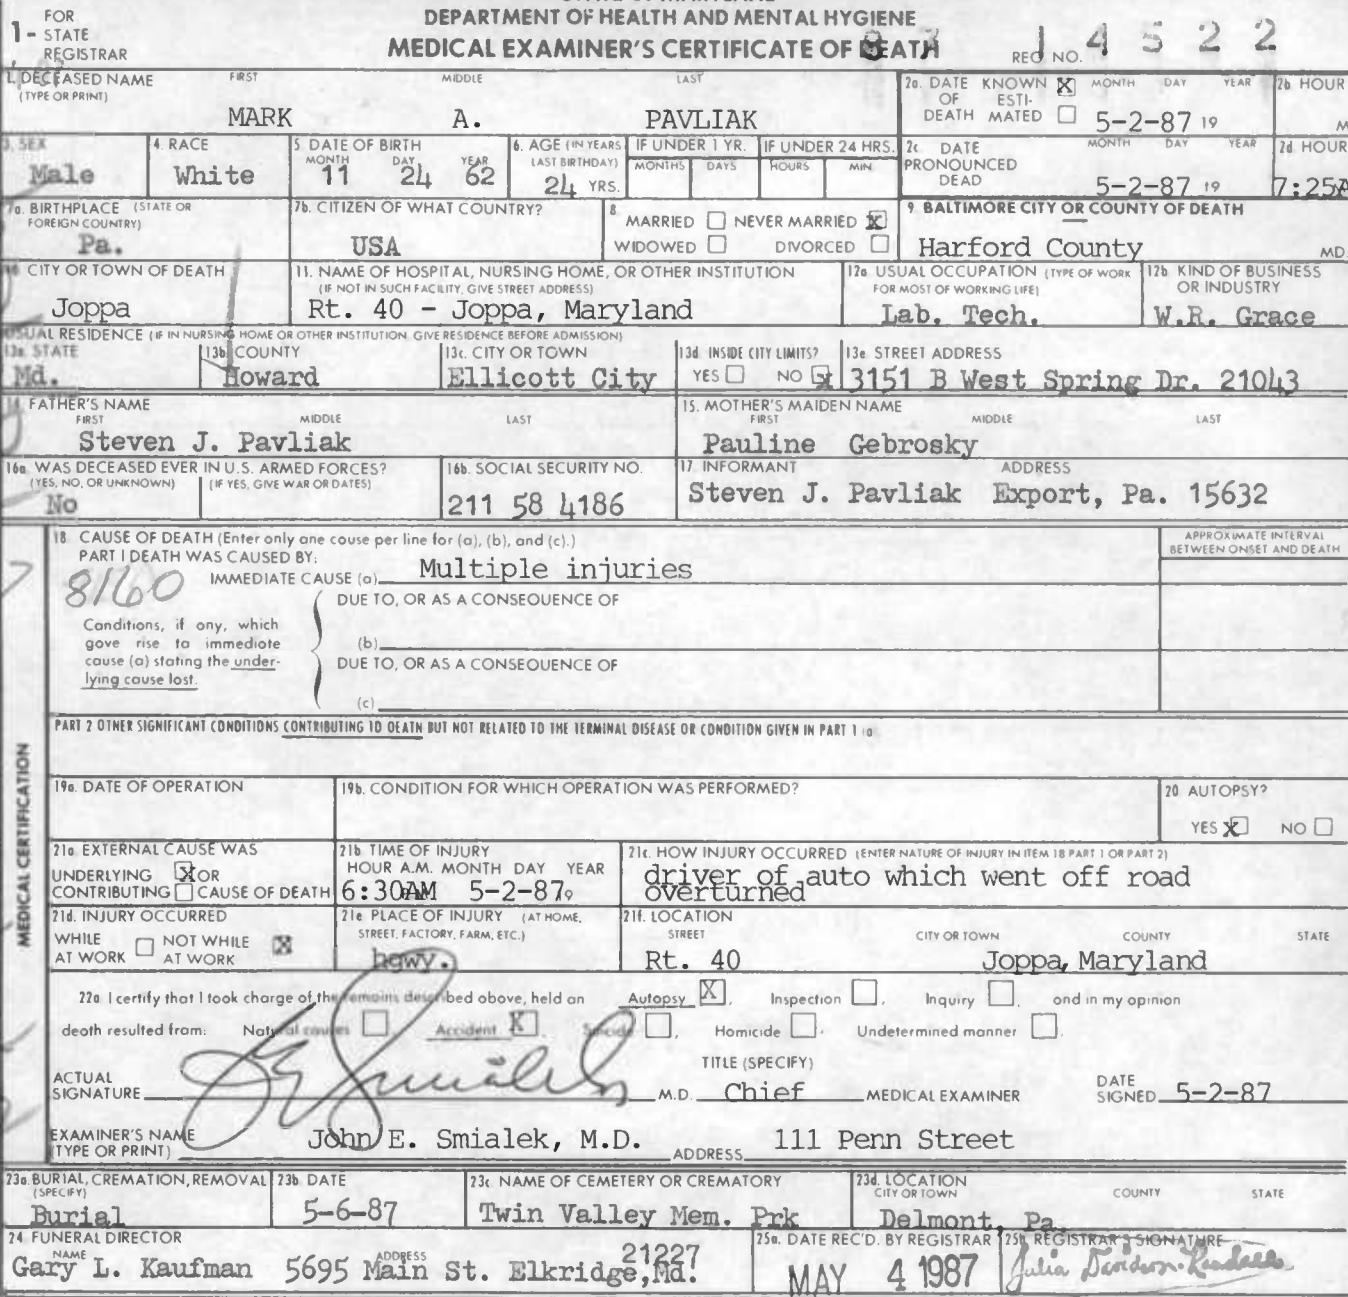 1- FOR STATE REGISTRAR
DEPARTMENT OF HEALTH AND MENTAL HYGIENE
MEDICAL EXAMINER'S CERTIFICATE OF DEATH
REG NO. 14522
1. DECEASED NAME (TYPE OR PRINT) FIRST MIDDLE LAST
MARK A. PAVLIAK
2a. DATE OF DEATH KNOWN X ESTIMATED MONTH DAY YEAR
5-2-87 19
2b HOUR M
3. SEX
Male
4. RACE
White
5 DATE OF BIRTH MONTH DAY YEAR
11 24 62
6. AGE (IN YEARS LAST BIRTHDAY)
24 YRS.
IF UNDER 1 YR. MONTHS DAYS
IF UNDER 24 HRS. HOURS MIN.
2c DATE PRONOUNCED DEAD MONTH DAY YEAR
5-2-87 19
2d HOUR
7:25A
7a. BIRTHPLACE (STATE OR FOREIGN COUNTRY)
Pa.
7b. CITIZEN OF WHAT COUNTRY?
USA
8 MARRIED NEVER MARRIED X
WIDOWED DIVORCED
9. BALTIMORE CITY OR COUNTY OF DEATH
Harford County MD.
10 CITY OR TOWN OF DEATH
Joppa
11. NAME OF HOSPITAL, NURSING HOME, OR OTHER INSTITUTION
(IF NOT IN SUCH FACILITY, GIVE STREET ADDRESS)
Rt. 40 - Joppa, Maryland
12a USUAL OCCUPATION (TYPE OF WORK FOR MOST OF WORKING LIFE)
Lab. Tech.
12b KIND OF BUSINESS OR INDUSTRY
W.R. Grace
USUAL RESIDENCE (IF IN NURSING HOME OR OTHER INSTITUTION. GIVE RESIDENCE BEFORE ADMISSION)
13a. STATE
Md.
13b COUNTY
Howard
13c. CITY OR TOWN
Ellicott City
13d. INSIDE CITY LIMITS?
YES NO X
13e STREET ADDRESS
3151 B West Spring Dr. 21043
14. FATHER'S NAME FIRST MIDDLE LAST
Steven J. Pavliak
15. MOTHER'S MAIDEN NAME FIRST MIDDLE LAST
Pauline Gebrosky
16a WAS DECEASED EVER IN U.S. ARMED FORCES?
(YES, NO, OR UNKNOWN) (IF YES, GIVE WAR OR DATES)
No
16b. SOCIAL SECURITY NO.
211 58 4186
17 INFORMANT ADDRESS
Steven J. Pavliak Export, Pa. 15632
MEDICAL CERTIFICATION
18 CAUSE OF DEATH (Enter only one cause per line for (a), (b), and (c).)
PART I DEATH WAS CAUSED BY:
APPROXIMATE INTERVAL BETWEEN ONSET AND DEATH
8160
IMMEDIATE CAUSE (a) Multiple injuries
DUE TO, OR AS A CONSEQUENCE OF
Conditions, if any, which gave rise to immediate cause (a) stating the underlying cause lost.
(b)
DUE TO, OR AS A CONSEQUENCE OF
(c)
PART 2 OTHER SIGNIFICANT CONDITIONS CONTRIBUTING TO DEATH BUT NOT RELATED TO THE TERMINAL DISEASE OR CONDITION GIVEN IN PART 1 (a)
19a. DATE OF OPERATION
19b. CONDITION FOR WHICH OPERATION WAS PERFORMED?
20 AUTOPSY?
YES X NO
21a. EXTERNAL CAUSE WAS
UNDERLYING X OR
CONTRIBUTING CAUSE OF DEATH
21b TIME OF INJURY
HOUR A.M. MONTH DAY YEAR
6:30AM 5-2-87
21c. HOW INJURY OCCURRED (ENTER NATURE OF INJURY IN ITEM 18 PART 1 OR PART 2)
driver of auto which went off road
overturned
21d. INJURY OCCURRED
WHILE AT WORK NOT WHILE AT WORK X
21e PLACE OF INJURY (AT HOME, STREET, FACTORY, FARM, ETC.)
hgwy.
21f. LOCATION
STREET CITY OR TOWN COUNTY STATE
Rt. 40 Joppa, Maryland
22a I certify that I took charge of the remains described above, held an Autopsy X, Inspection , Inquiry , and in my opinion
death resulted from: Natural causes , Accident X, Suicide , Homicide . Undetermined manner .
ACTUAL SIGNATURE J E Smialek M.D.
TITLE (SPECIFY)
Chief MEDICAL EXAMINER
DATE SIGNED 5-2-87
EXAMINER'S NAME (TYPE OR PRINT) John E. Smialek, M.D. ADDRESS 111 Penn Street
23a. BURIAL, CREMATION, REMOVAL (SPECIFY)
Burial
23b DATE
5-6-87
23c NAME OF CEMETERY OR CREMATORY
Twin Valley Mem. Prk
23d. LOCATION CITY OR TOWN COUNTY STATE
Delmont, Pa.
24 FUNERAL DIRECTOR
NAME ADDRESS
Gary L. Kaufman 5695 Main St. Elkridge, Md. 21227
25a. DATE REC'D. BY REGISTRAR
MAY 4 1987
25b REGISTRAR'S SIGNATURE
Julia Davidson-Randall